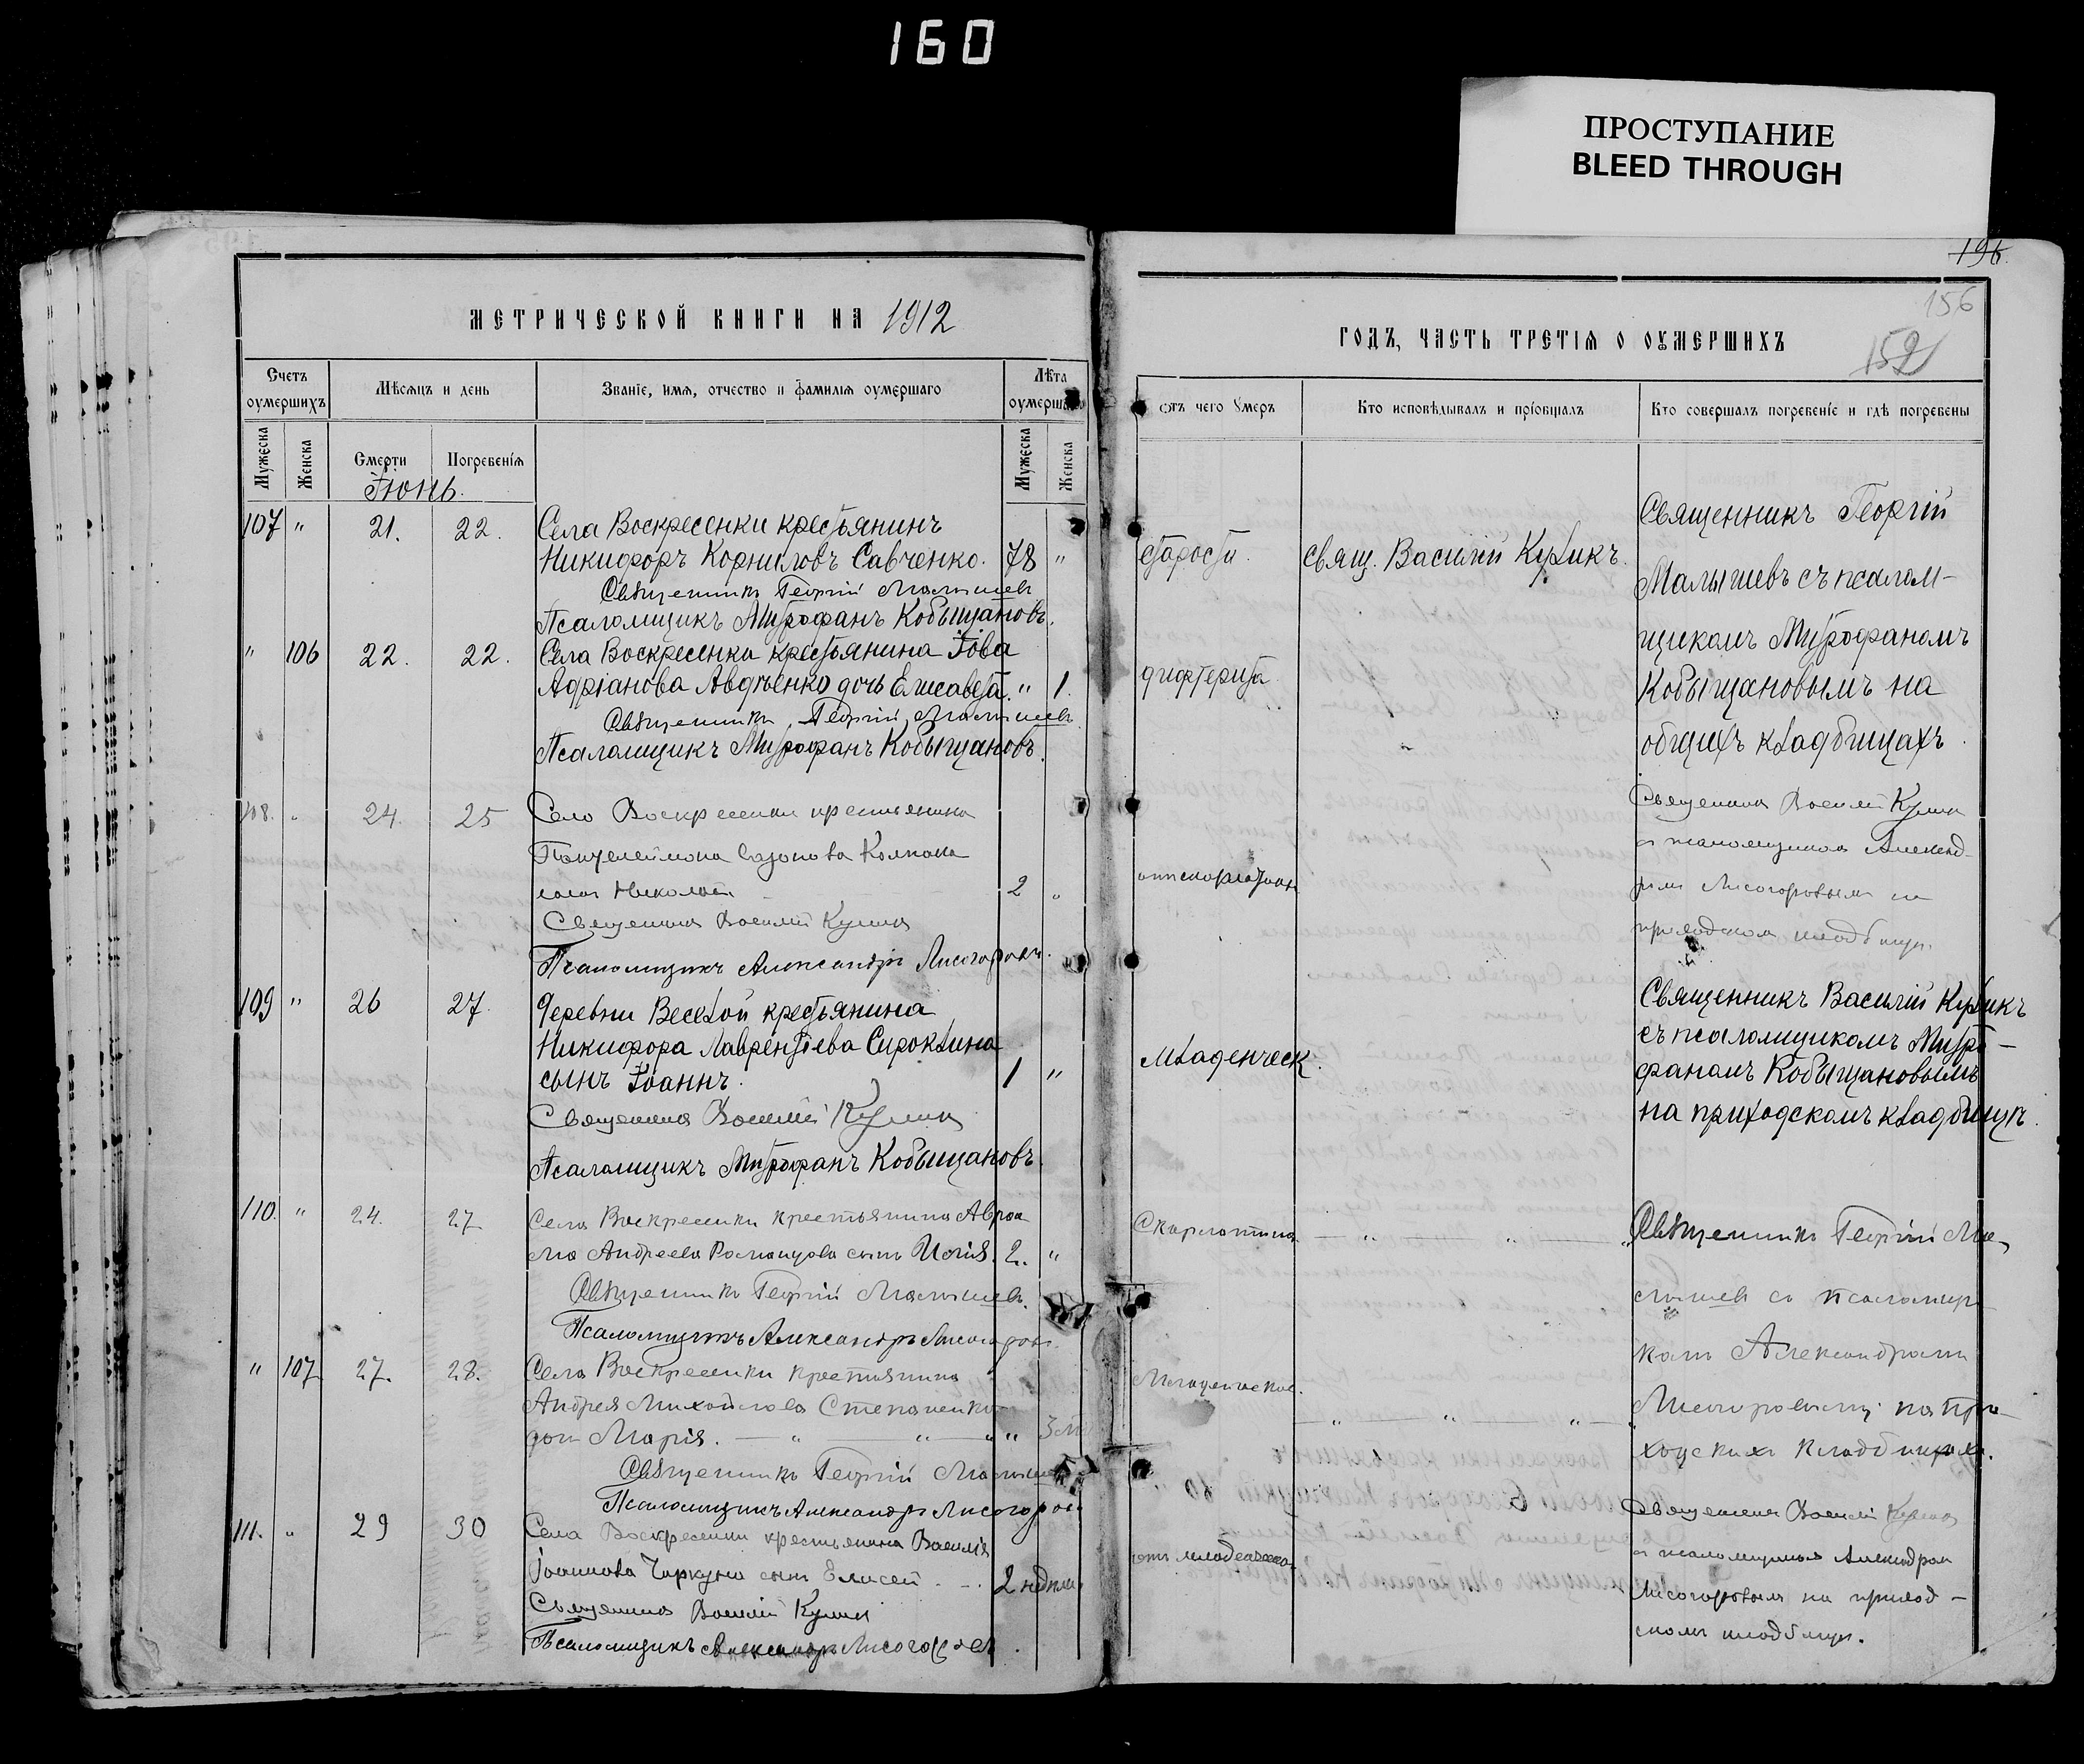 160
ПРОСТУПАНИЕ
BLEED THROUGH
МЕТРИЧЕСКОЙ КНИГИ НА 1912
Счетъ оумершихъ
Мѣсяцъ и день
Званіе, имя, отчество и фамилія оумершаго
Лѣта оумершаго
Мужеска
Женска
Смерти
Погребенія
Мужеска
Женска
Іюнь.
107 " 21. 22. Села Воскресенки крестьянинъ
Никифоръ Корниловъ Савченко. 78 "
Священникъ Георгій Малышевъ
Псаломщикъ Митрофанъ Кобыщановъ.
" 106 22. 22. Села Воскресенки крестьянина Іова
Адріанова Авдѣенко дочь Елисавета. " 1.
Священникъ Георгій Малышевъ
Псаломщикъ Митрофанъ Кобыщановъ.
108. " 24. 25 Село Воскресенки крестьянина
Пантелеймона Сазонова Колпака
сынъ Николай 2 "
Священникъ Василій Куликъ
Псаломщикъ Александръ Лисогоровъ.
109 " 26 27. Деревни Веселой крестьянина
Никифора Лаврентіева Сироклина
сынъ Іоаннъ. 1 "
Священникъ Василій Куликъ
Псаломщикъ Митрофанъ Кобыщановъ.
110. " 24. 27 Села Воскресенки крестьянина Авраа
ма Андреева Романцова сынъ Илія. 2. "
Священникъ Георгій Малышевъ.
Псаломщикъ Александръ Лисогоровъ.
" 107 27. 28. Села Воскресенки крестьянина
Андрея Михайлова Степаненко
дочь Марія. — " — " — " " 3 м
Священникъ Георгій Малышевъ
Псаломщикъ Александръ Лисогоровъ
111. " 29 30 Села Воскресенки крестьянина Василія
Іоаннова Чаркуна сынъ Елисей 2 недѣли
Священникъ Василій Куликъ
Псаломщикъ Александръ Лисогоровъ.
196.
156
152
ГОДЪ, ЧАСТЬ ТРЕТІЯ О ОУМЕРШИХЪ
Ѿтъ чего Умеръ
Кто исповѣдывалъ и пріобщалъ
Кто совершалъ погребеніе и гдѣ погребены
старости.
свящ. Василій Куликъ.
Священникъ Георгій
Малышевъ съ псалом-
щикомъ Митрофаномъ
Кобыщановымъ на
общихъ кладбищахъ.
дифтерита
Священникъ Василій Куликъ
съ псаломщикомъ Александ-
ромъ Лисогоровымъ на
приходскомъ кладбищѣ.
отъ скарлатины
Священникъ Василій Куликъ
съ псаломщикомъ Митро-
фаномъ Кобыщановымъ
на приходскомъ кладбищѣ.
младенческ.
Скарлатина — " — " — "
Священникъ Георгій Ма-
лышевъ съ псаломщи-
комъ Александромъ
Лисогоровымъ на при-
ходскихъ кладбищахъ.
Младенческой. — " — " — " — "
отъ младенческой
Священникъ Василій Куликъ
съ псаломщикомъ Александромъ
Лисогоровымъ на приход-
скомъ кладбищѣ.